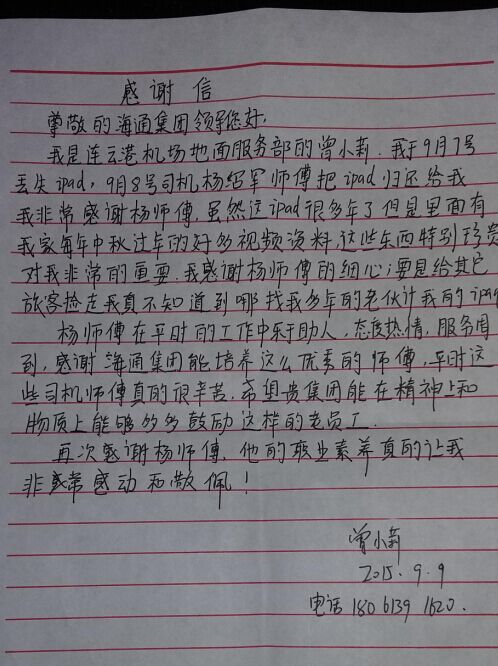 感谢信
尊敬的海通集团领导您好,
我是连云港机场地面服务部的曾小莉.我于9月7号
丢失ipad,9月8号司机杨绍军师傅把ipad归还给我
我非常感谢杨师傅,虽然这ipad很多年了但是里面有
我家每年中秋过年的好多视频资料,这些东西特别珍贵
对我非常的重要.我感谢杨师傅的细心,要是给其它
旅客捡走我真不知道到哪找我多年的老伙计我的ipad
杨师傅在平时的工作中乐于助人,态度热情,服务周
到,感谢海通集团能培养这么优秀的师傅,平时这
些司机师傅真的很辛苦.希望贵集团能在精神上和
物质上能够多多鼓励这样的老员工.
再次感谢杨师傅,他的职业素养真的让我
非常感动和敬佩!
曾小莉
2015.9.9
电话 180 6139 1620.